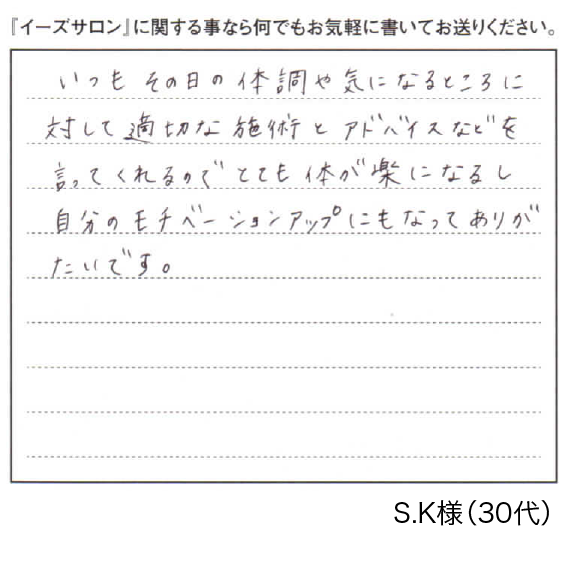 『イーズサロン』に関する事なら何でもお気軽に書いてお送りください。
いつも その日の 体調や気になるところに
対して 適切な 施術と アドバイスなどを
言ってくれるので とても 体が 楽になるし
自分のモチベーションアップにもなって ありが
たいです。
S.K様（30代）